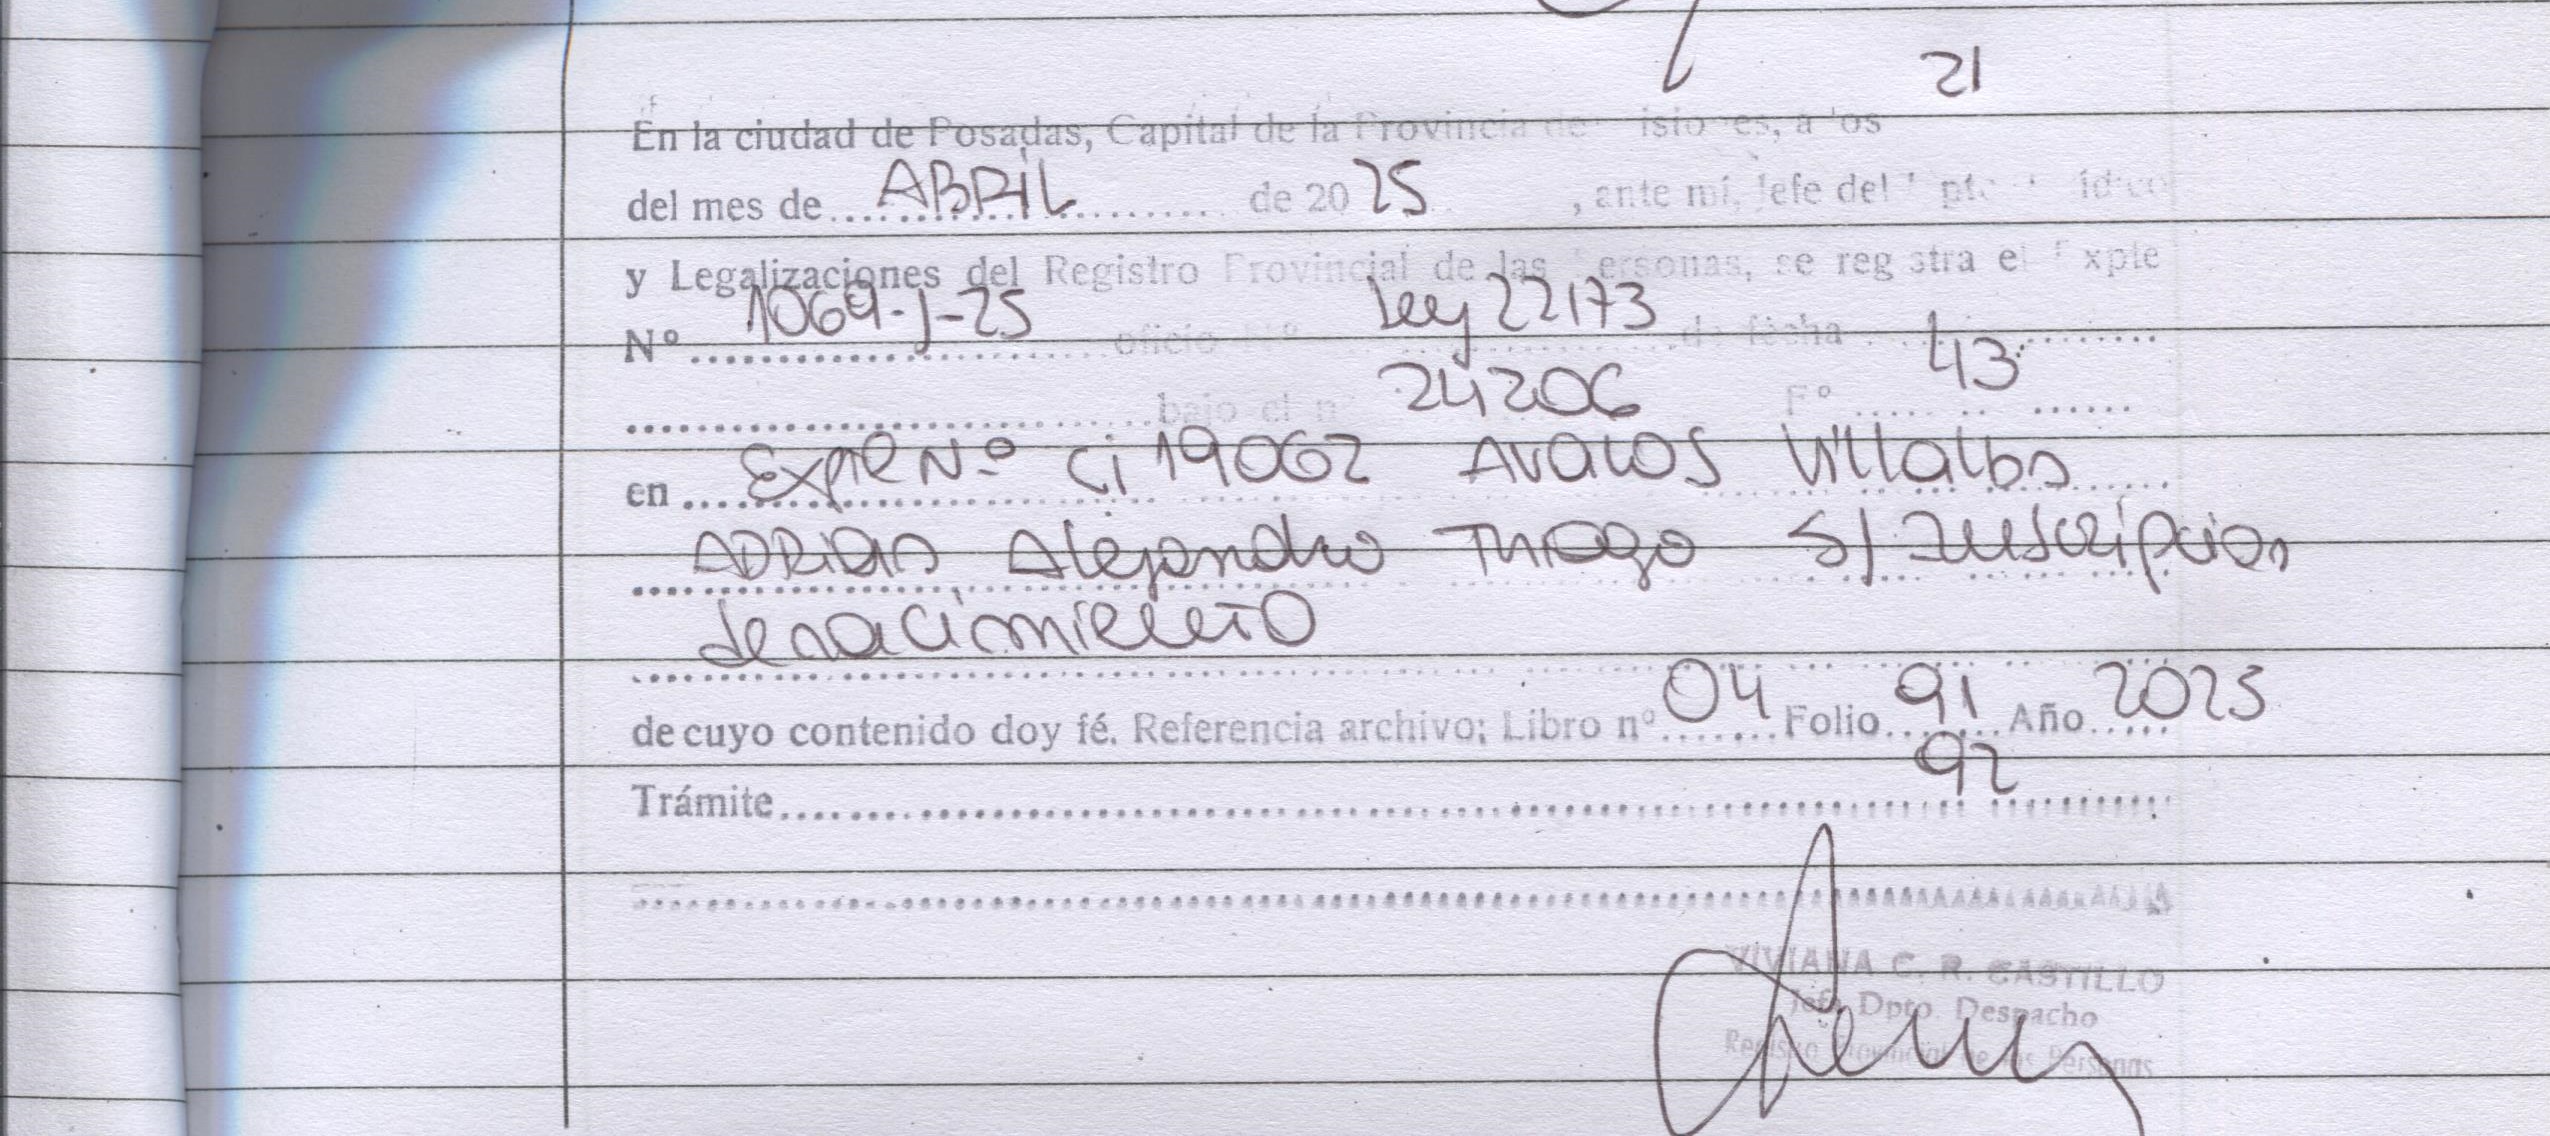 21
En la ciudad de Posadas, Capital de la Provincia de isiones, a los
del mes de ABRIL de 2025, ante mí, Jefe del
y Legalizaciones del Registro Provincial de las Personas, se registra el Expte
Nº 1069-J-25 oficio Nº Ley 22173 de fecha
bajo el nº 24206 Fº 43
en Expte Nº Ci 19062 Avalos Villalba
ADRIAN Alejandro Thiago S/ Inscripcion
de nacimiento
de cuyo contenido doy fé. Referencia archivo: Libro nº 04 Folio 91 Año 2025
92
Trámite
VIVIANA C. R. CASTILLO
Jefa Dpto. Despacho
Registro Provincial de las Personas